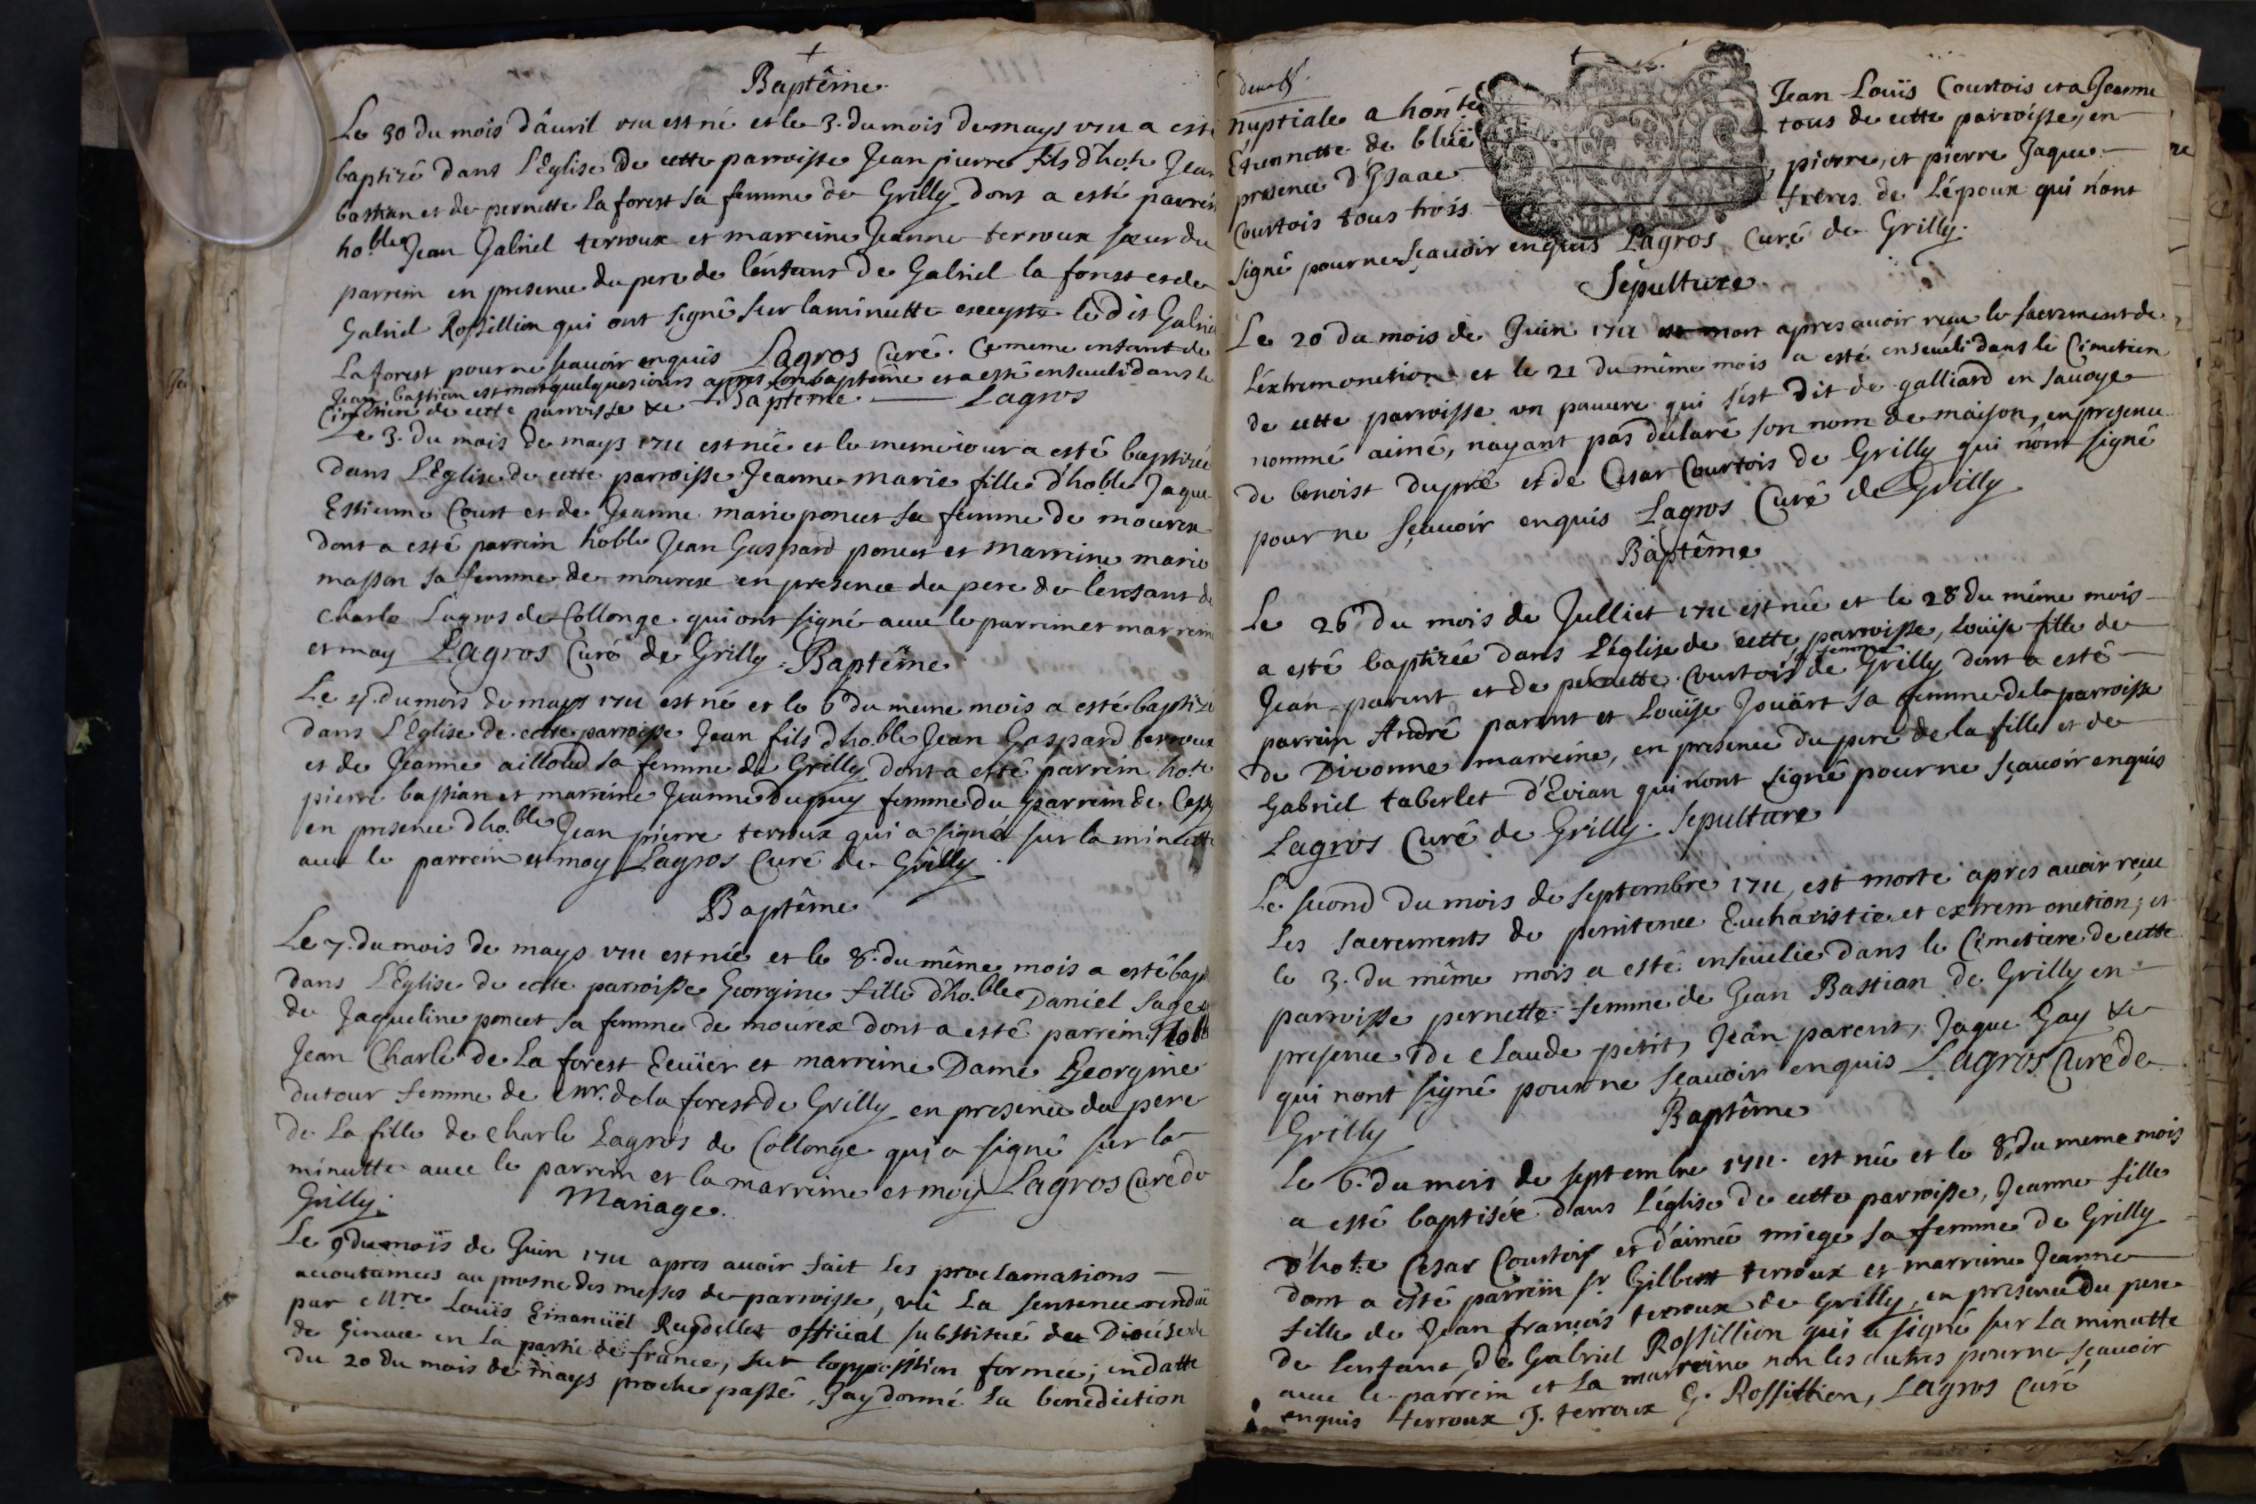 Baptême
Le 30 du mois d'âuril 1711 est né et le 3. du mois de mays 1711 a esté
baptizé dans L'Eglise de cette parroisse Jean pierre fils d'ho.le Jean
bastian et de pernette La forest sa femme de Grilly dont a esté parrein
ho.ble Jean Gabriel terroux et marreine Jeanne terroux sœur du
parrein en presence du pere de l'enfant de Gabriel la forest et de
Gabriel Rossillion qui ont signé sur la minutte excepté le dit Gabriel
La forest pour ne scauoir enquis Lagros Curé. Ce meme enfant de
Jean bastian est mort quelques iours apres son baptême et a esté enseueli dans le
Cimetiere de cette parroisse &c Baptême Lagros
Le 3. du mois de mays 1711 est née et le meme iour a esté baptizée
dans L'Eglise de cette parroisse Jeanne marie fille d'ho.ble Jaque
Estienne Court et de Jeanne marie poncet sa femme de mourex
dont a esté parrein ho.ble Jean Gaspard poncet et marreine marie
masson sa femme de mourex en presence du pere de l'enfant de
Charle Lagros de Collonge qui ont signé auec le parrein et marreine
et moy Lagros Curé de Grilly. Baptême
Le 4. du mois de mays 1711 est né et le 6 du meme mois a esté baptizé
dans L'Eglise de cette parroisse Jean fils d'ho.ble Jean Gaspard terroux
et de Jeanne ailloud sa femme de Grilly dont a esté parrein ho.te
pierre bastian et marreine Jeanne Dupuy femme du parrein de Cessy
en presence d'ho.ble Jean pierre terroux qui a signé sur la minutte
auec le parrein et moy Lagros Curé de Grilly.
Baptême
Le 7. du mois de mays 1711 est née et le 8. du même mois a esté bapt
dans L'Eglise de cette parroisse Georgine fille d'ho.ble Daniel Sage et
de Jaqueline poncet sa femme de mourex dont a esté parrein Noble
Jean Charle de La forest Ecuïer et marreine Dame Georgine
dutour femme de Mr. de la forest de Grilly en presence du pere
de La fille de Charle Lagros de Collonge qui a signé sur la
minutte auec le parrein et la marreine et moy Lagros Curé de
Grilly. Mariage.
Le 9 du moïs de Juin 1711 apres auoir fait les proclamations
accoutumées au prosne des messes de parroisse, vû La sentence rendüe
par Mre Louïs Emanüel Rugdellet official substitué du Diocése de
de Geneue en la partie de france, sur l'opposition formée, en datte
du 20 du mois de mays proche passé, J'ay donné la benediction
deux s.
nuptiale a hon.te Jean Louïs Courtois et a Jeanne
Etiennette de bluë tous de cette parroisse, en
presence d'Isaac pierre, et pierre Jaque
Courtois tous trois freres de L'époux qui n'ont
signé pour ne sçauoir enquis Lagros Curé de Grilly.
Sépulture
Le 20 du mois de Juin 1711 est mort apres auoir reçu le sacrement de
L'éxtremonction et le 21 du même mois a esté enseueli dans le Cimetiere
de cette parroisse un pauure qui s'est dit de galliard en sauoye
nommé aimé, nayant pas déclaré son nom de maison, en presence
de benoist dupré et de Cesar Courtois de Grilly qui n'ont signé
pour ne sçauoir enquis Lagros Curé de Grilly
Baptême
Le 26 du mois de Julliet 1711 est née et le 28 du même mois
a esté baptizée dans L'église de cette parroisse, Louïse fille de
Jean parent et de pernette Courtois sa femme de Grilly dont a esté
parrein André parent et Louïse Jouärt sa femme de la parroisse
de Diuonne marreine, en presence du pere de la fille et de
Gabriel taberlet d'Evian qui n'ont signé pour ne sçauoir enquis
Lagros Curé de Grilly. Sepulture
Le second du mois de septembre 1711, est morte apres auoir reçu
Les sacrements de penitence Eucharistie et extrem onction; et
le 3. du même mois a esté enseuelie dans le Cimetiere de cette
parroisse pernette femme de Jean Bastian de Grilly en
presence de Claude petit, Jean parent, Jaque Gay &c
qui n'ont signé pour ne sçauoir enquis Lagros Curé de
Grilly Baptême
Le 6. du mois de septembre 1711. est née et le 8. du meme mois
a esté baptisée dans L'église de cette parroisse, Jeanne fille
d'ho.te Cesar Courtois et d'aimée miege sa femme de Grilly
dont a esté parrein sr. Gilbert terroux et marreine Jeanne
fille de Jean françois terroux de Grilly, en presence du pere
de l'enfant, de Gabriel Rossillion qui a signé sur la minutte
auec le parrein et la marreine non les autres pour ne sçauoir
enquis terroux J. terroux G. Rossillion, Lagros Curé